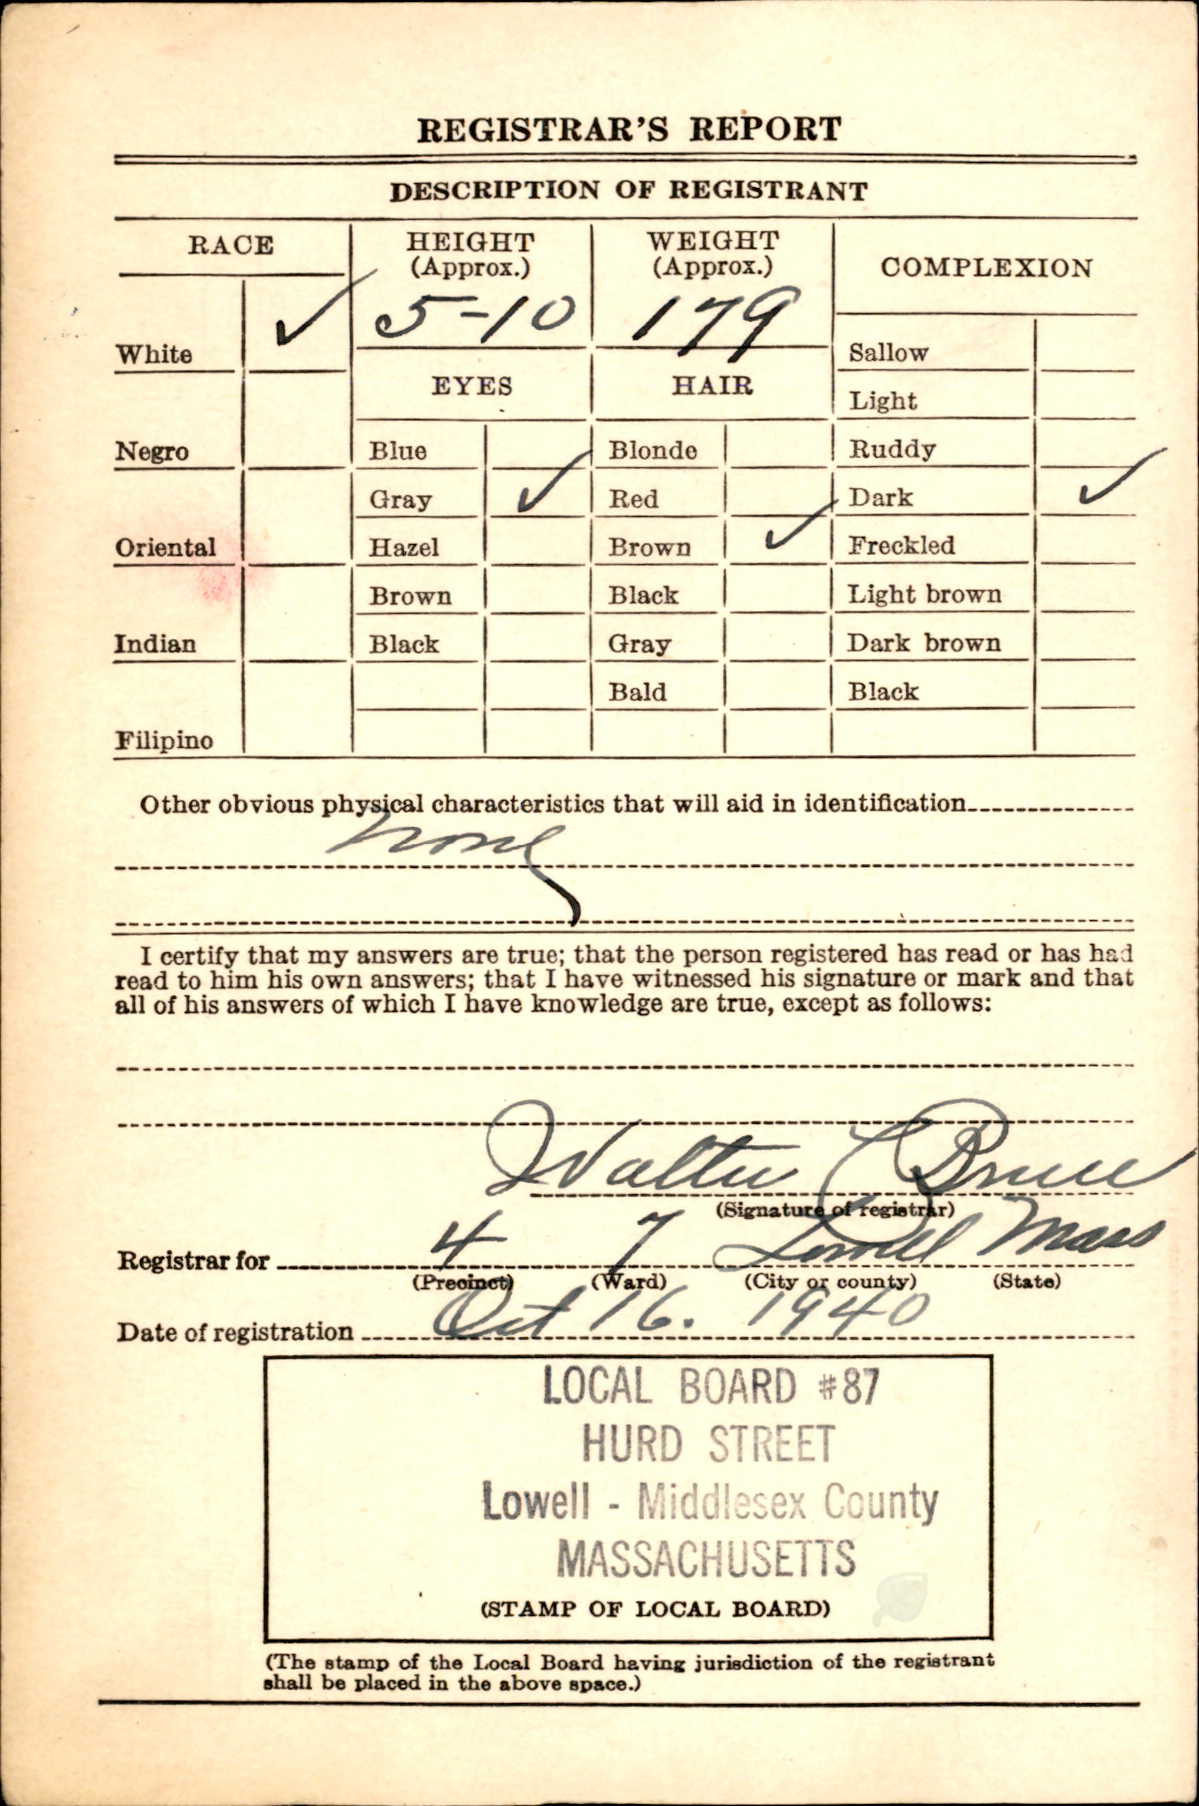 REGISTRAR'S REPORT
DESCRIPTION OF REGISTRANT
RACE
HEIGHT
(Approx.)
WEIGHT
(Approx.)
COMPLEXION
5-10
179
White ✓
Sallow
EYES
HAIR
Light
Negro
Blue
Blonde
Ruddy
Gray ✓
Red
Dark ✓
Oriental
Hazel
Brown ✓
Freckled
Brown
Black
Light brown
Indian
Black
Gray
Dark brown
Bald
Black
Filipino
Other obvious physical characteristics that will aid in identification
none
I certify that my answers are true; that the person registered has read or has had
read to him his own answers; that I have witnessed his signature or mark and that
all of his answers of which I have knowledge are true, except as follows:
Walter C Bruce
(Signature of registrar)
Registrar for 4 7 Lowell Mass
(Precinct) (Ward) (City or county) (State)
Date of registration Oct 16. 1940
LOCAL BOARD #87
HURD STREET
Lowell - Middlesex County
MASSACHUSETTS
(STAMP OF LOCAL BOARD)
(The stamp of the Local Board having jurisdiction of the registrant
shall be placed in the above space.)